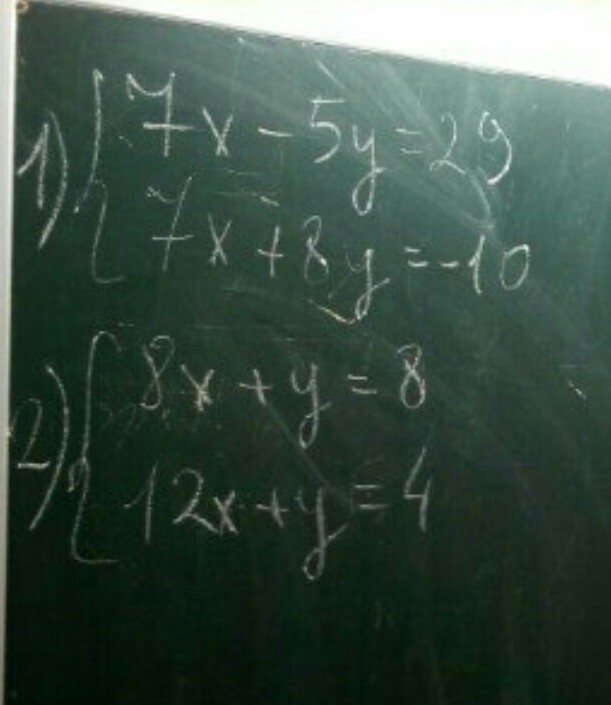 1) { 7x - 5y = 29
7x + 8y = -10
2) { 8x + y = 8
12x + y = 4